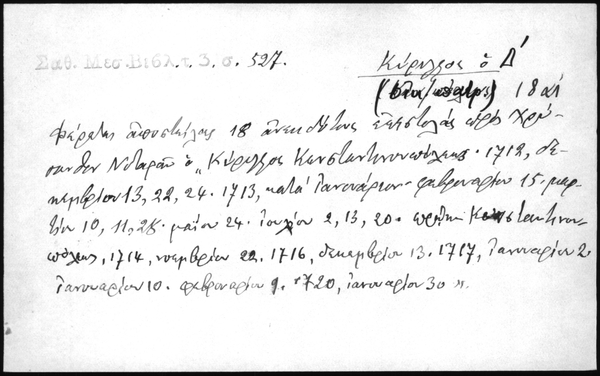 Σαθ. Μεσ. Βιβλ. τ. 3. σ. 527.
Κύριλλος ὁ Δ΄
18 αἰ
Φέρεται ἀποστείλας 18 ἀνεκδότους ἐπιστολὰς πρὸς Χρύ-
σανθον Νοταρᾶν ὁ „Κύριλλος Κωνσταντινουπόλεως. 1712, δε-
κεμβρίου 13, 22, 24. 1713, κατὰ Ἰανουάριον. φεβρουαρίου 15. μαρ-
τίου 10, 11, 28. μαΐου 24. Ἰουλίου 2, 13, 20. πρώην Κωνσταντινου-
πόλεως, 1714, νοεμβρίου 22. 1716, δεκεμβρίου 13. 1717, Ἰανουαρίου 2
Ἰανουαρίου 10. φεβρουαρίου 9. 1720, Ἰανουαρίου 30".